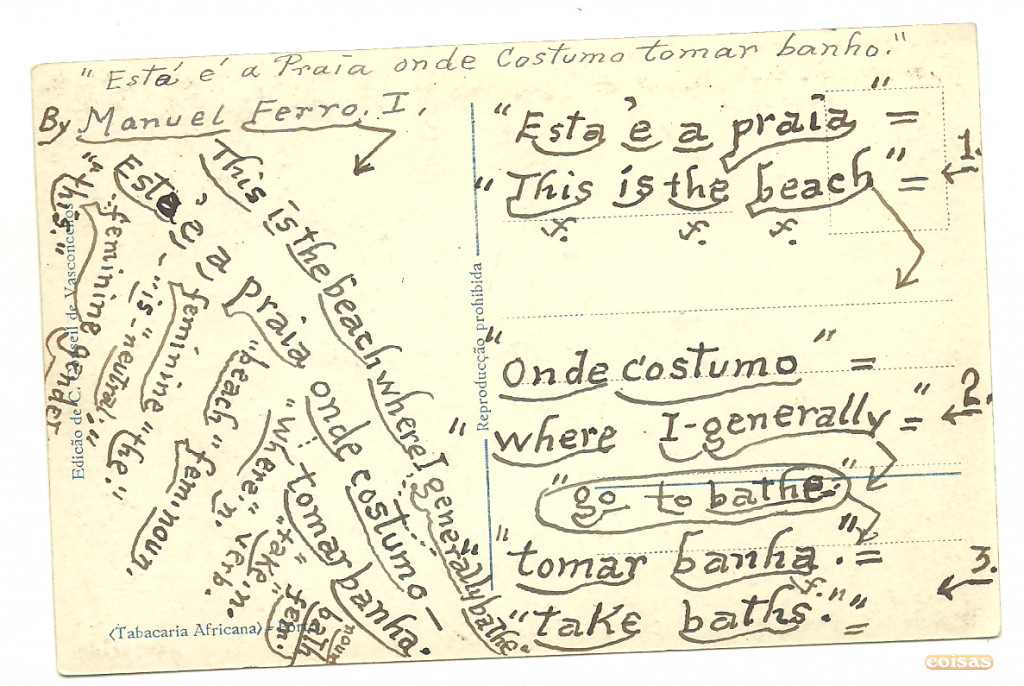 "Está é a Praia onde Costumo tomar banho."
By Manuel Ferro. I.
This is the beach where I generally bathe."
Esta é a praia onde costumo – tomar banha.
"this." feminine gender
– "is – neutral"
feminine "the."
"beach" feminine noun.
"where." n. verb.
"take". n.
= bath noun fem.
Edicão de C. Conseil de Vasconcellos
<Tabacaria Africana> – Porto
Reproducção prohibida
"Esta é a praia" =
"This is the beach" = 1.
f. f. f.
"Onde costumo" =
"where I-generally =" 2.
"go to bathe."
"tomar banha." = 3.
f. n
"take baths." =
coisas